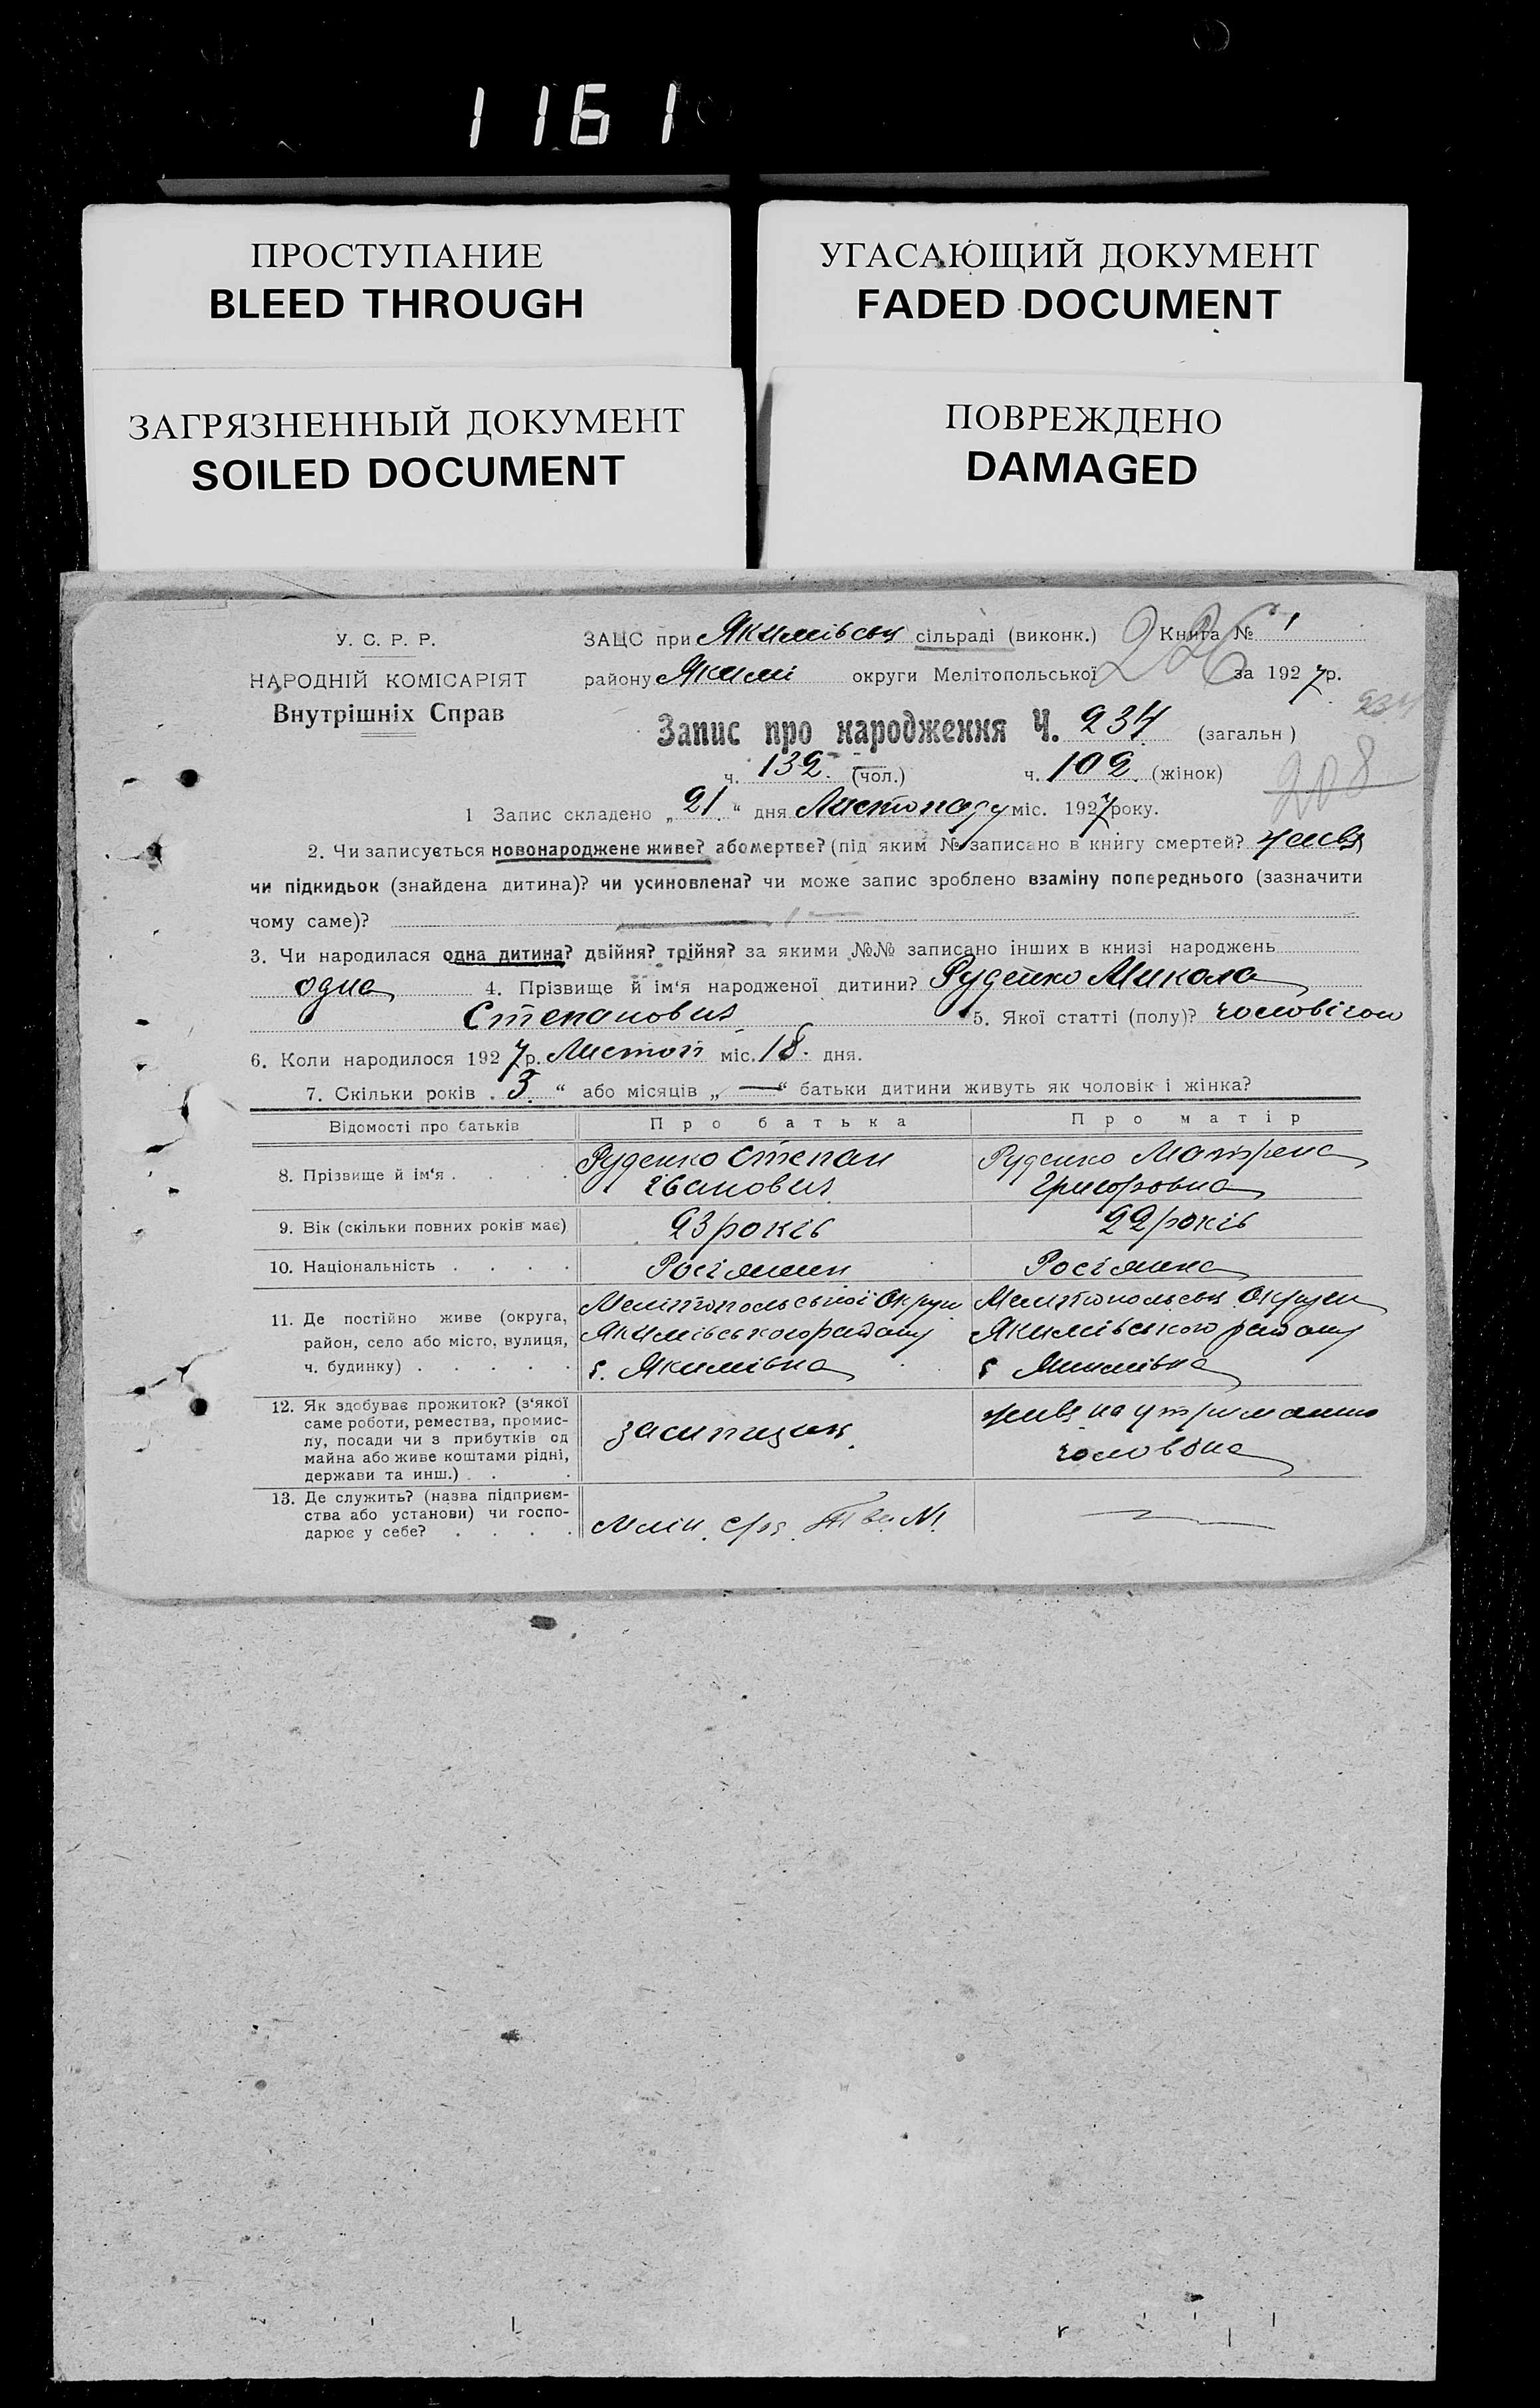 1161
ПРОСТУПАНИЕ
BLEED THROUGH
УГАСАЮЩИЙ ДОКУМЕНТ
FADED DOCUMENT
ЗАГРЯЗНЕННЫЙ ДОКУМЕНТ
SOILED DOCUMENT
ПОВРЕЖДЕНО
DAMAGED
У. С. Р. Р.
НАРОДНІЙ КОМІСАРІЯТ
Внутрішніх Справ
ЗАЦС при Якимівськ сільраді (виконк.) Книга № 1
226
району Якимі округи Мелітопольської за 1927 р.
234
Запис про народження Ч. 234 (загальн)
ч. 132 (чол.) ч. 102 (жінок)
208
1 Запис складено „21“ дня Листопаду міс. 1927 року.
2. Чи записується новонароджене живе? або мертве? (під яким № записано в книгу смертей? живе
чи підкидьок (знайдена дитина)? чи усиновлена? чи може запис зроблено взаміну попереднього (зазначити
чому саме)?
3. Чи народилася одна дитина? двійня? трійня? за якими №№ записано інших в книзі народжень
одна 4. Прізвище й ім'я народженої дитини? Руденко Микола
Степанович 5. Якої статті (полу)? чоловічої
6. Коли народилося 1927 р. Листоп міс. 18 дня.
7. Скільки років „3“ або місяців „—“ батьки дитини живуть як чоловік і жінка?
Відомості про батьків Про батька Про матір
8. Прізвище й ім'я . . . . Руденко Степан Руденко Матрена
Іванович Григоровна
9. Вік (скільки повних років має) 23 років 22 років
10. Національність . . . . Росіянин Росіянка
11. Де постійно живе (округа, Мелітопольської Округи Мелітопольськ Округи
район, село або місто, вулиця, Якимівського району Якимівського району
ч. будинку) . . . . . с. Якимівка с Якимівка
12. Як здобуває прожиток? (з'якої
саме роботи, ремества, промис-
лу, посади чи з прибутків од
майна або живе коштами рідні,
держави та инш.) . .
засипщик
живе на утриманню
чоловіка
13. Де служить? (назва підприєм-
ства або установи) чи госпо-
дарює у себе? . . . .
Млин №1